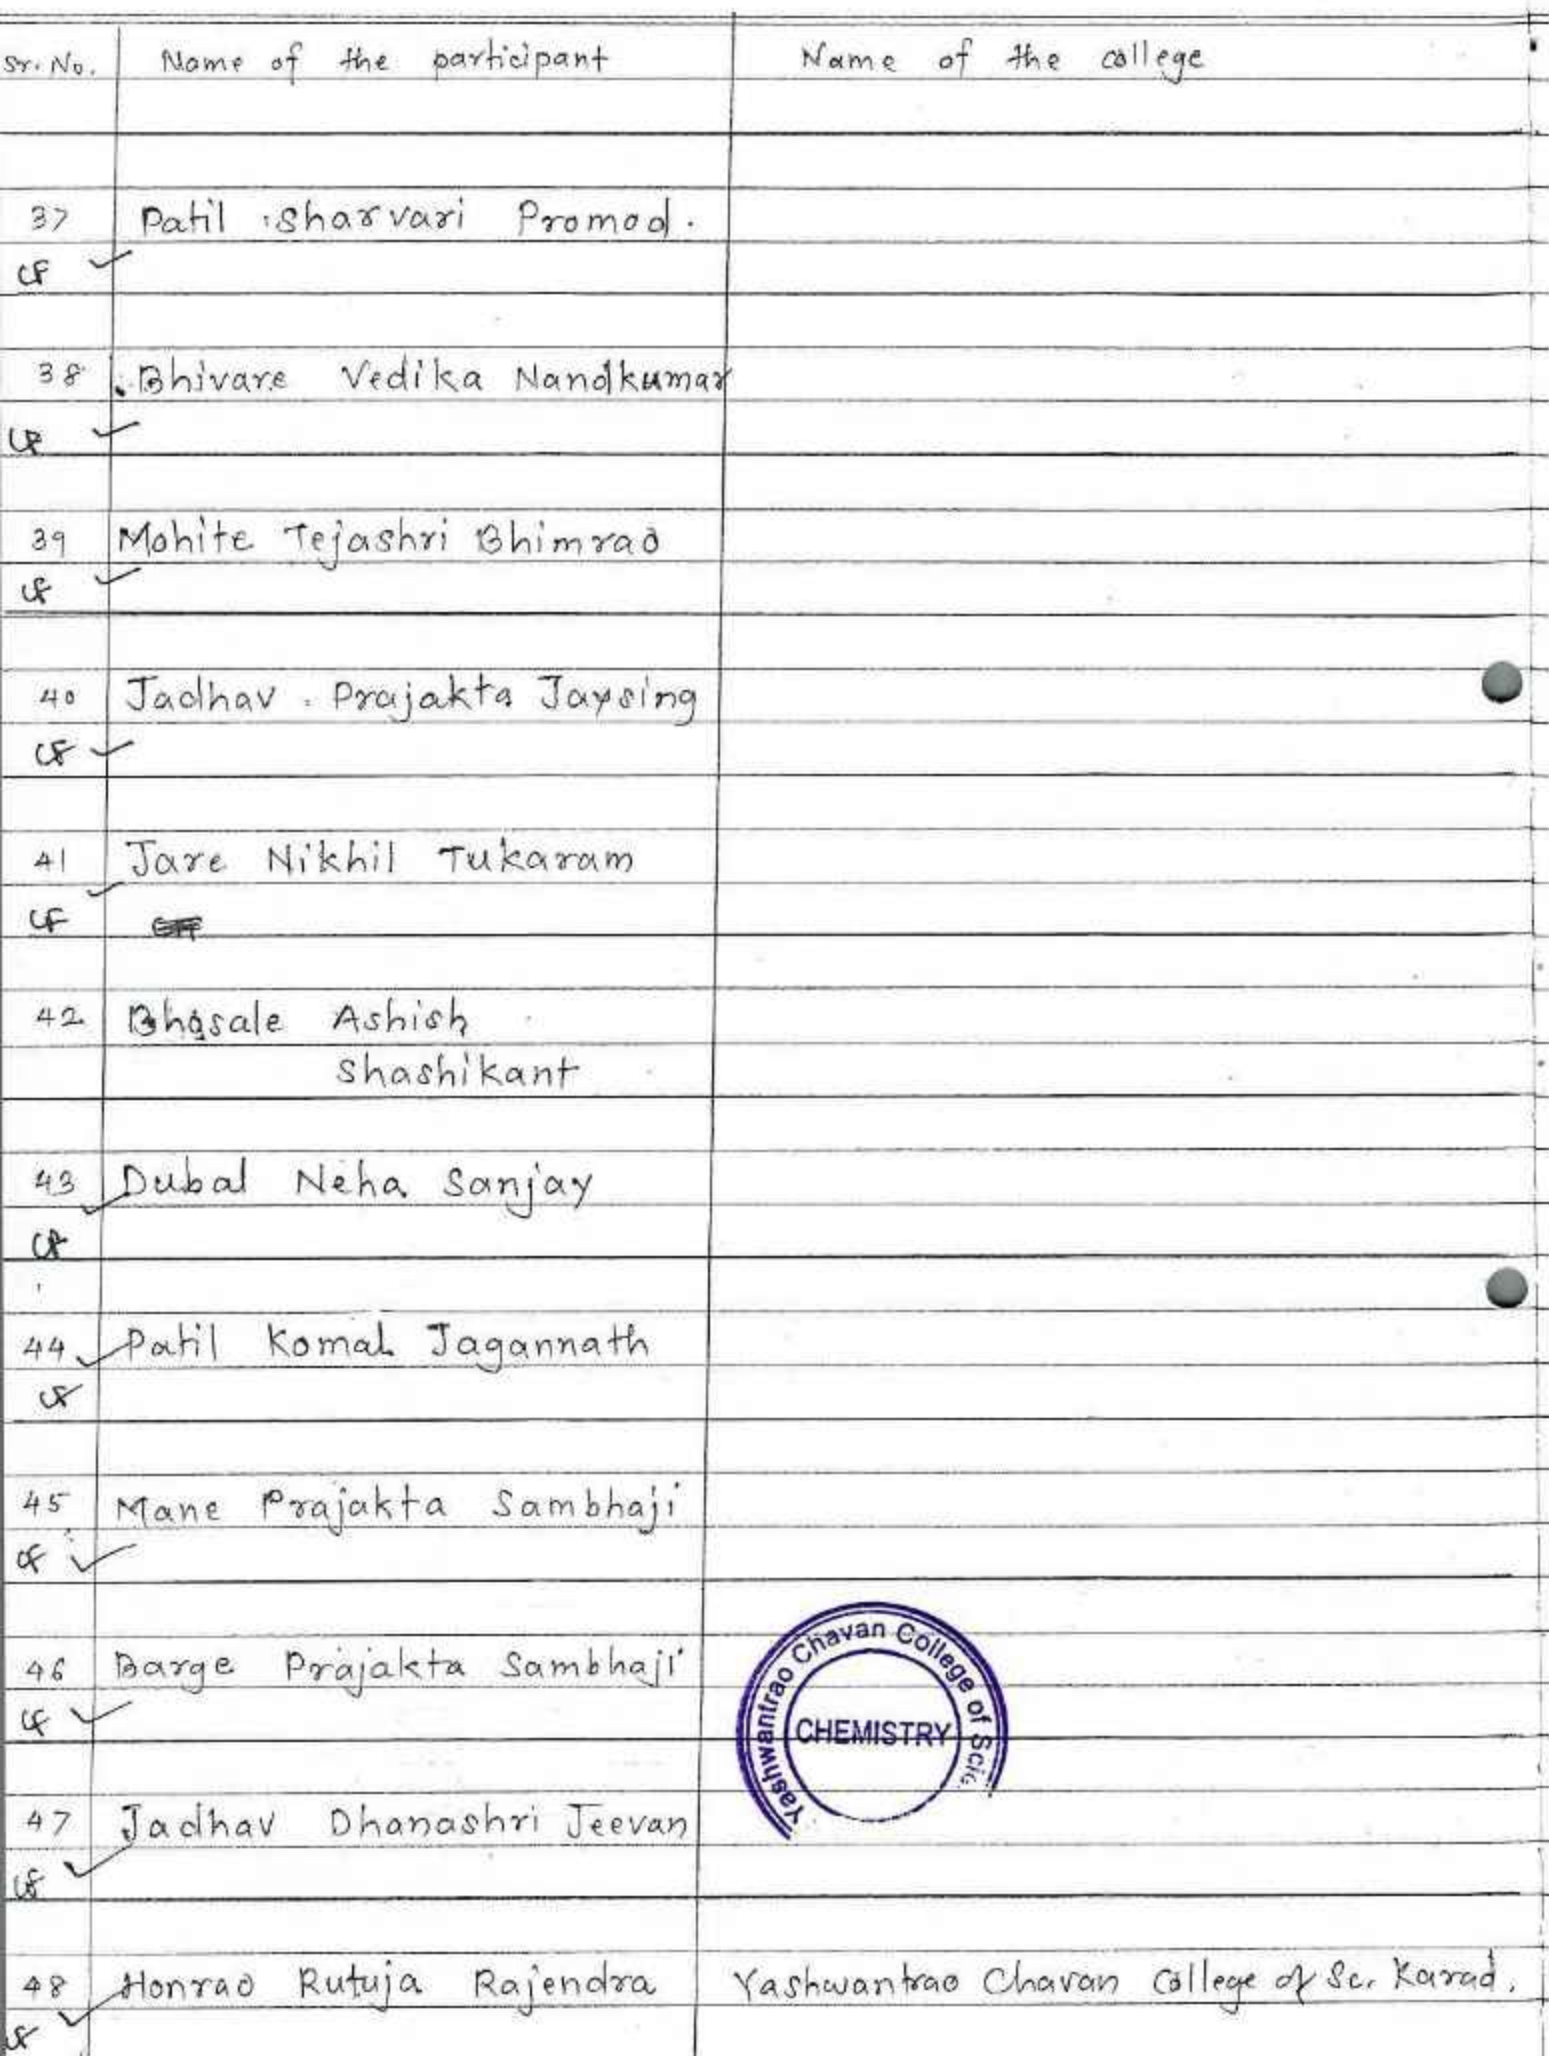 Sr. No. Name of the participant Name of the college
37 Patil Sharvari Promod.
CF ✓
38 Bhivare Vedika Nandkumar
CF ✓
39 Mohite Tejashri Bhimrao
CF ✓
40 Jadhav Prajakta Jaysing
CF ✓
41 Jare Nikhil Tukaram
CF ✓
42 Bhosale Ashish
Shashikant
43 Dubal Neha Sanjay
CF ✓
44 Patil Komal Jagannath
CF ✓
45 Mane Prajakta Sambhaji
CF ✓
46 Barge Prajakta Sambhaji
CF ✓
Yashwantrao Chavan College of Scie
CHEMISTRY
47 Jadhav Dhanashri Jeevan
CF ✓
48 Honrao Rutuja Rajendra Yashwantrao Chavan College of Sc. Karad.
CF ✓